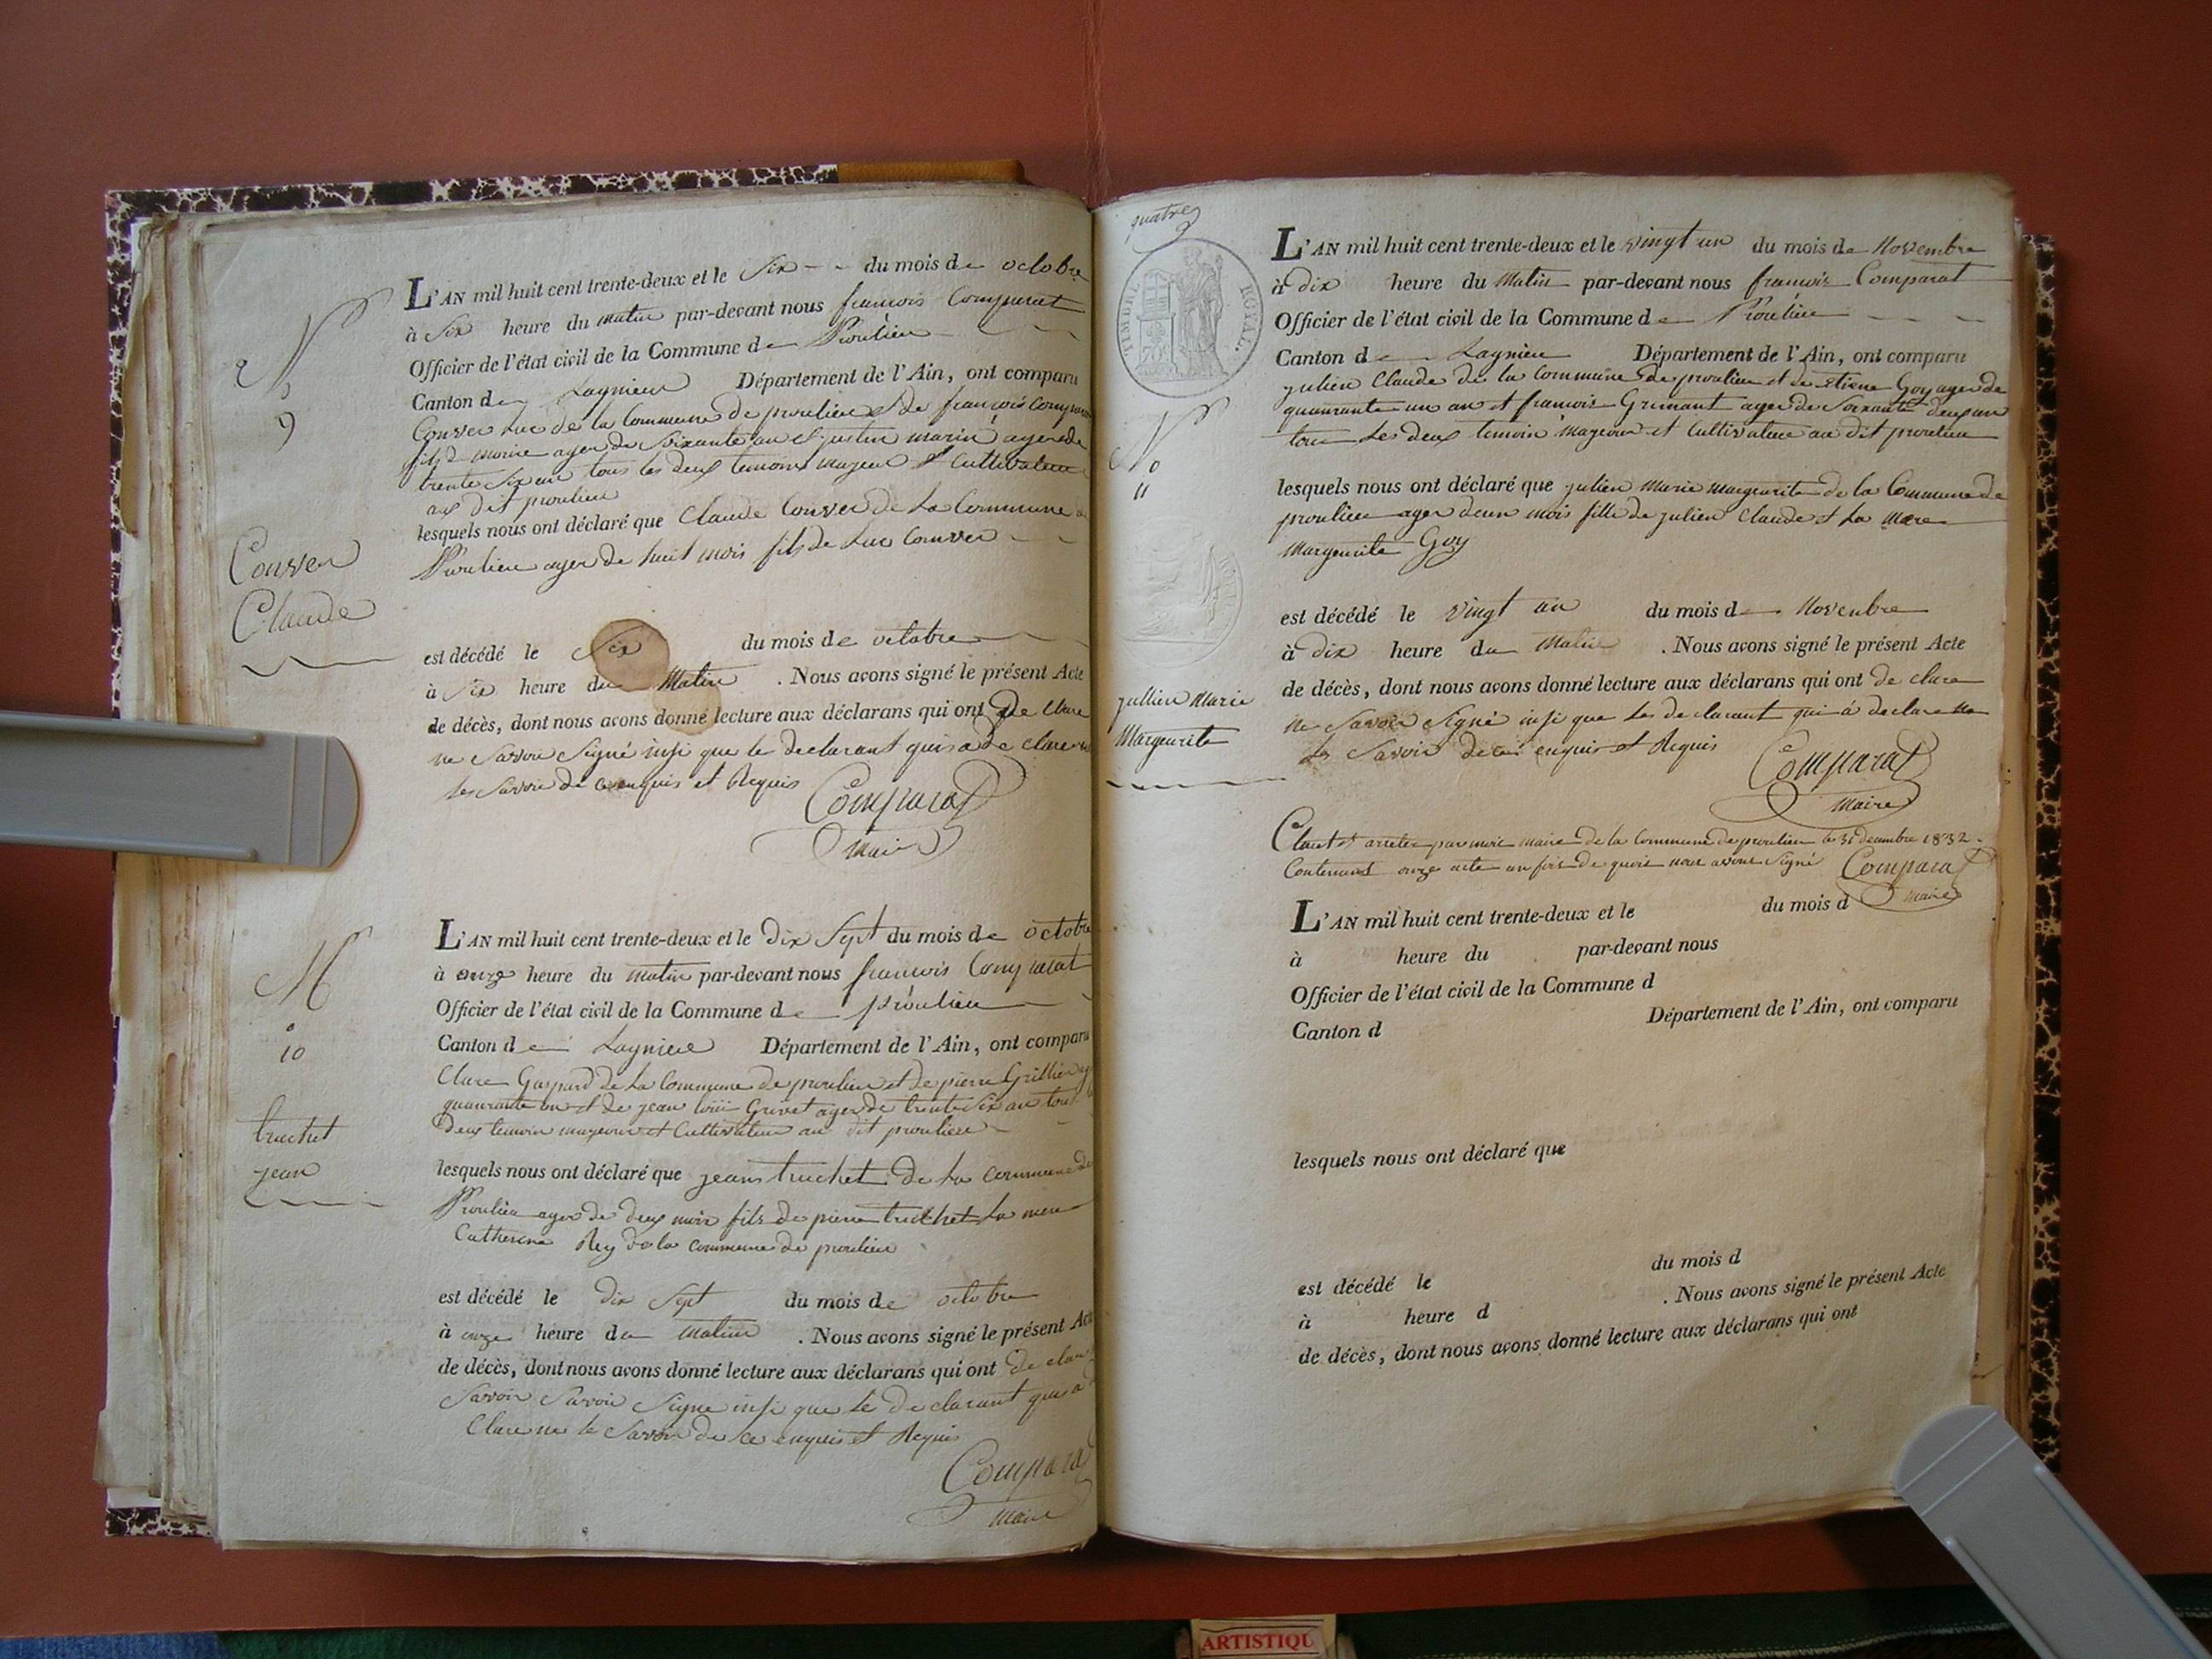 N
o
9
Conver
Claude
L'AN mil huit cent trente-deux et le Six du mois de octobre
à Six heure du matin par-devant nous francois Comparat
Officier de l'état civil de la Commune de Proulieu
Canton de Lagnieu Département de l'Ain, ont comparu
Conver Luc de la Commune de proulieu et de francois
ager de Soixante an et justin marin ager de
trente Six an tous les deux temoins majeur et Cultivateur
au dit proulieu
lesquels nous ont déclaré que Claude Conver de La Commune de
Proulieu ager de huit mois fils de Luc Conver
est décédé le Six du mois de octobre
à Six heure du Matin . Nous avons signé le présent Acte
de décès, dont nous avons donné lecture aux déclarans qui ont de clare
ne Savoir Signé insi que le declarant qui a de clare ne
Les Savoir de ce enquis et Requis
Comparat
Maire
N
o
10
truchet
jean
L'AN mil huit cent trente-deux et le dix Sept du mois de octobre
à onze heure du matin par-devant nous francois Comparat
Officier de l'état civil de la Commune de proulieu
Canton de Lagnieu Département de l'Ain, ont comparu
Clare Gaspard de La Commune de proulieu et de pierre Grillier
quanrante an et de jean Grivet ager de trente Six an tout
Deux temoin majeur et Cultivateur au dit proulieu
lesquels nous ont déclaré que jean truchet de La commune de
Proulieu ager de deux mois fils de pierre truchet La mere
Catherine Rey de la commune de proulieu
est décédé le dix Sept du mois de octobre
à onze heure du matin . Nous avons signé le présent Acte
de décès, dont nous avons donné lecture aux déclarans qui ont de clare
Savoir Savoir Signe insi que le declarant qui a de
Clare ne le Savoir de ce enquis et Requis
Comparat
maire
quatre
TIMBRE ROYAL.
70
N
o
11
jullien Marie
Margeurite
L'AN mil huit cent trente-deux et le vingt un du mois de Novembre
à dix heure du Matin par-devant nous francois Comparat
Officier de l'état civil de la Commune de Proulieu
Canton de Lagnieu Département de l'Ain, ont comparu
julien Claude de la Commune de proulieu et de Etiene Goy ager de
quanrante un an et francois Grimant ager de Soixante deux an
tous Les deux temoin majeur et Cultivateur au dit proulieu
lesquels nous ont déclaré que julien Marie margeurite de la Commune de
proulieu ager deun mois fille de julien Claude et La Mere
Margeurite Goy
est décédé le vingt un du mois de Novenbre
à dix heure du Matin . Nous avons signé le présent Acte
de décès, dont nous avons donné lecture aux déclarans qui ont de clare
ne Savoir Signé insi que Les declarant qui á declare ne
Les Savoir de ce enquis et Requis
Comparat
Maire
Claut et arreter par moi maire de la commune de proulieu le 31 decembre 1832.
Contenant onze acte an foi de quoi nous avons Signé Comparat
maire
L'AN mil huit cent trente-deux et le du mois d
à heure du par-devant nous
Officier de l'état civil de la Commune d
Canton d Département de l'Ain, ont comparu
lesquels nous ont déclaré que
est décédé le du mois d
à heure d . Nous avons signé le présent Acte
de décès, dont nous avons donné lecture aux déclarans qui ont
ARTISTIQU